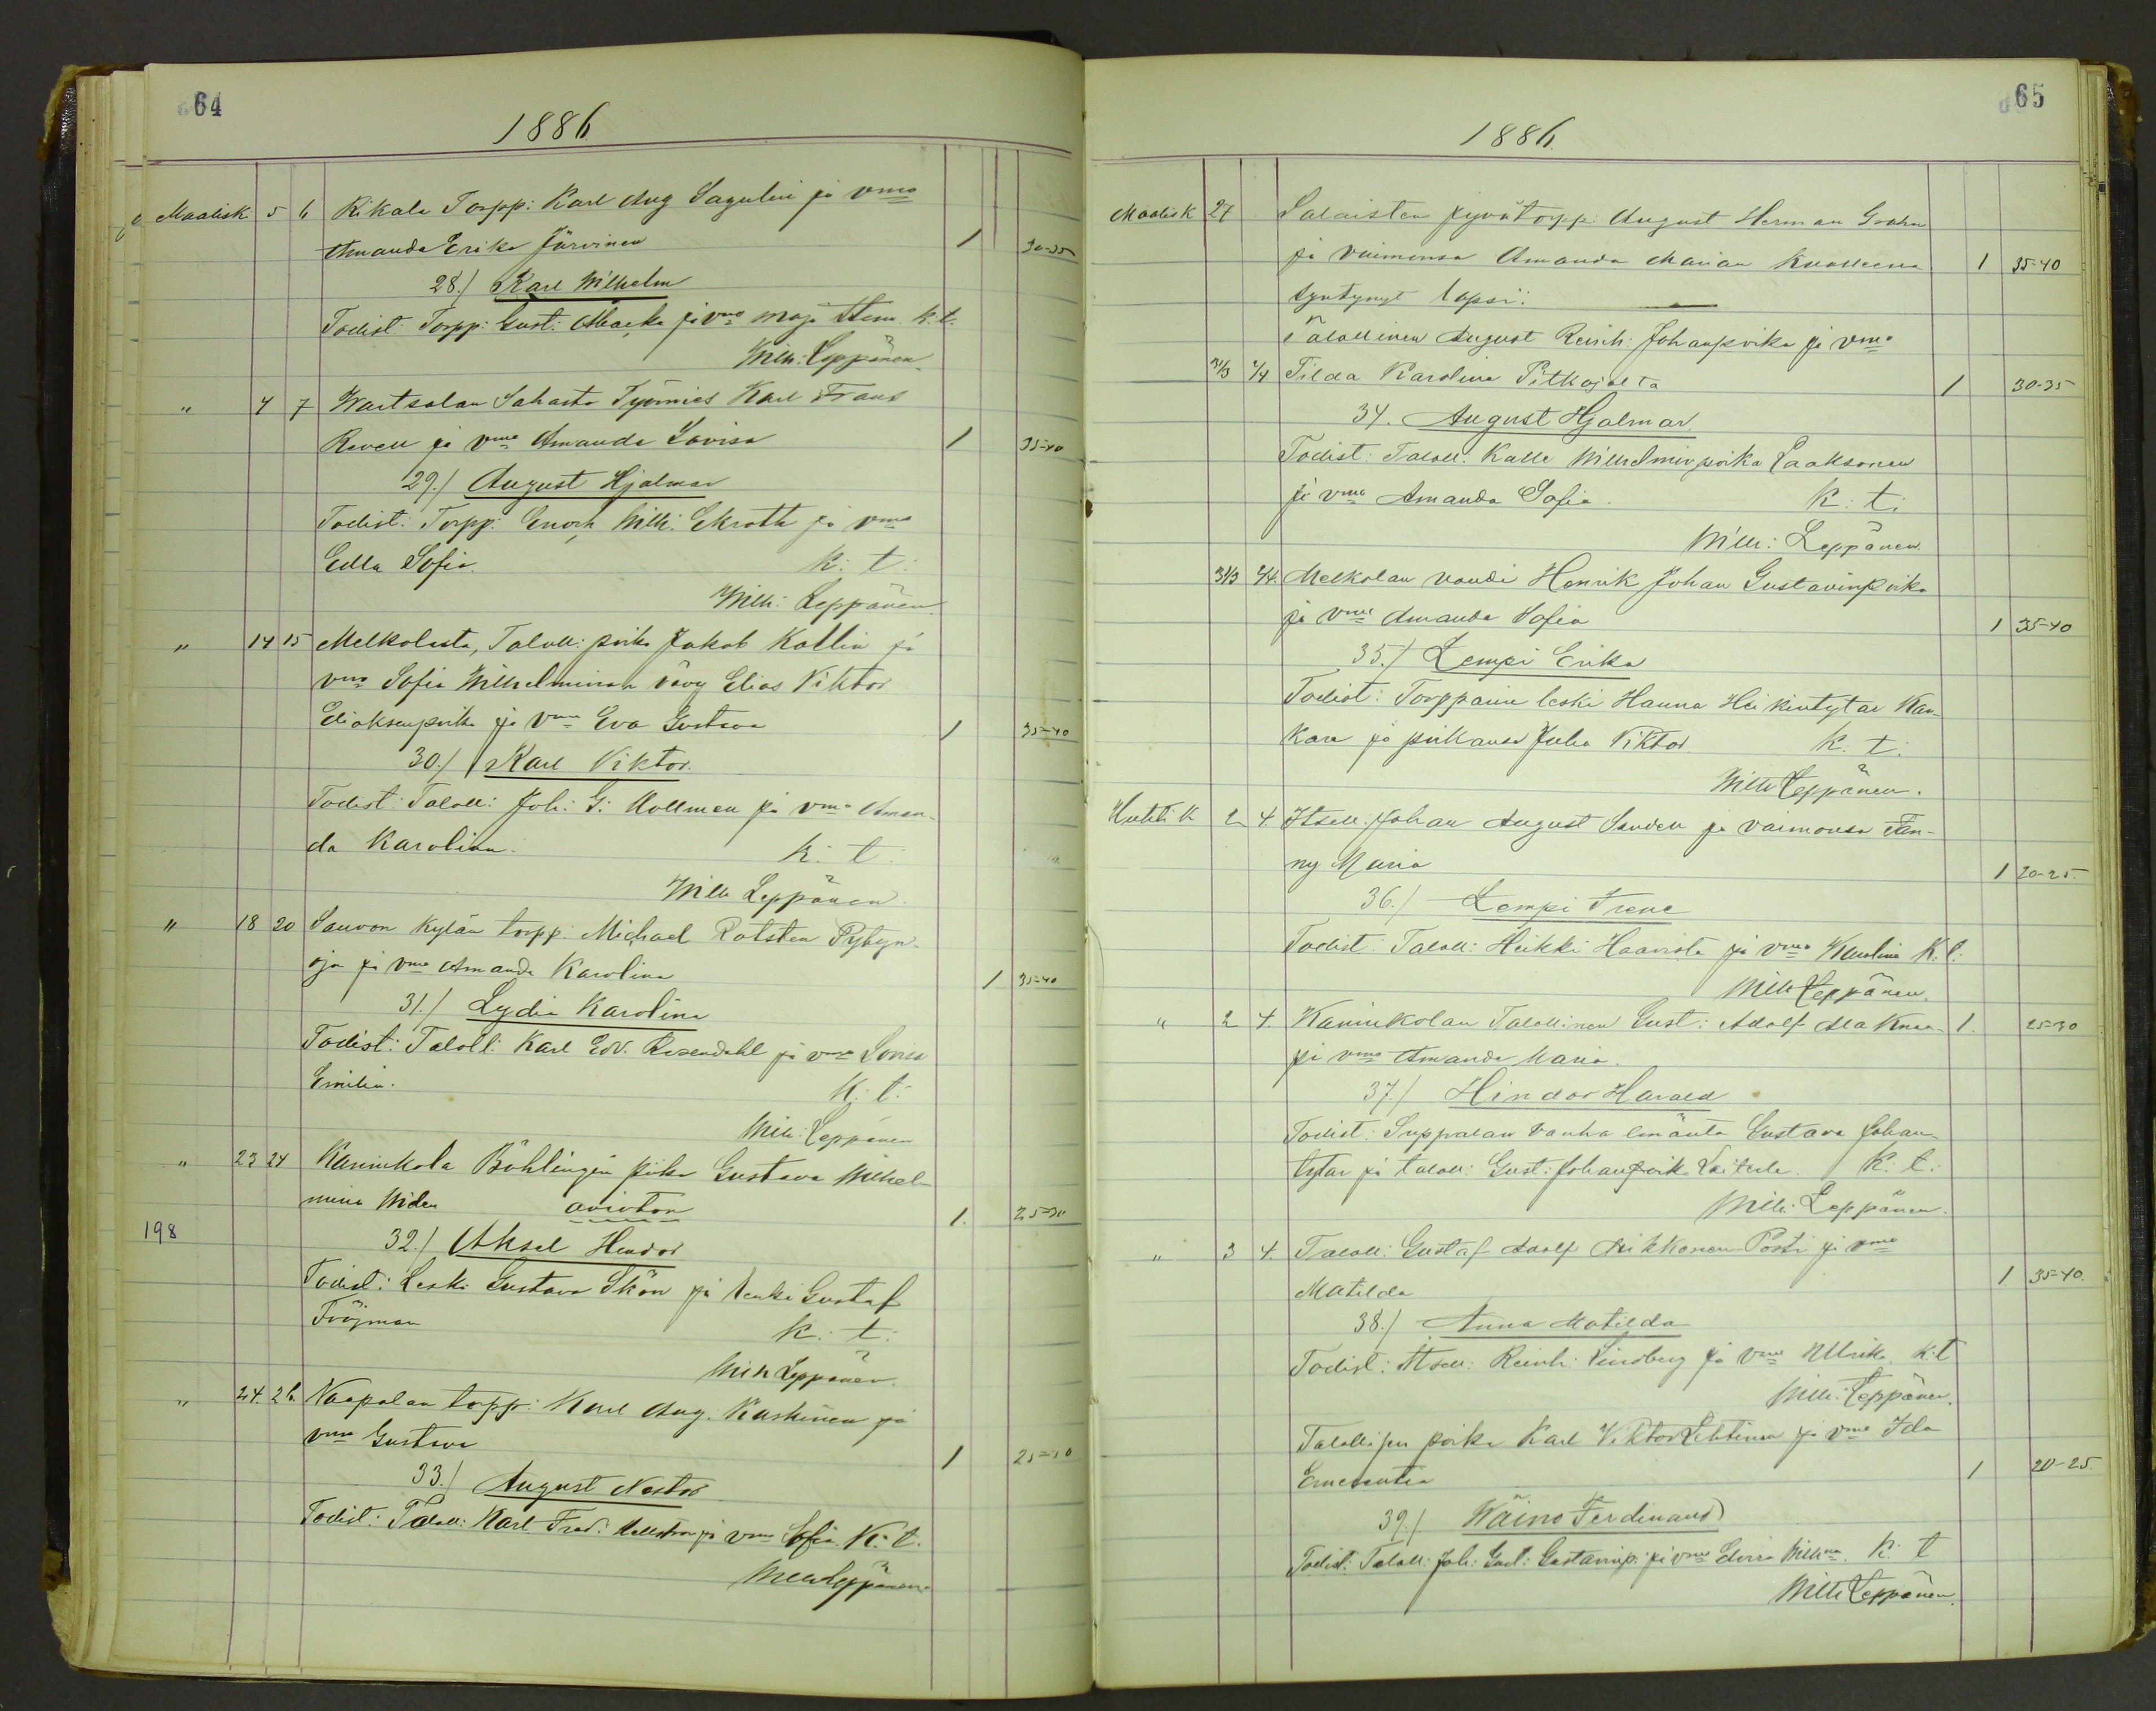 64
1886
Maalisk 5 6 Rikala Torpp: Karl Aug Sagulin ja vmo
Amanda Erika Järvinen 1 30-35
28./ Karl Wilhelm
Todist: Torpp: Gust: ja vmo Maja k.t.
Wilh: Leppänen
" 4 7 Wartsalan Sahasta Työmies Karl Frans
Revell ja vmo Amanda Lovisa 1 35-40
29./ August Hjalmar
Todist: Torpp: Enoch Wilh: Ekroth ja vmo
Edla Sofia. k: t:
Wilh: Leppänen
" 14 15 Melkolasta, Taloll: poika Jakob Kallin ja
vmo Sofia Wilhelminan vävy Elias Viktor
Eliaksenpoika ja vmo Eva Gustava 1 35-40
30./ Karl Viktor.
Todist: Taloll: Joh: G: Kollman ja vmo Aman-
da Karolina. k: t:
Wilh Leppänen
" 18 20 Sauvon kylän torpp: Michael Rotsten Pyhyn-
oja ja vmo Amanda Karolina 1 35-40
31./ Lydia Karolina
Todist: Taloll: Karl Edv. Rosendahl ja vmo Lovisa
Emilia. k: t:
Wilh: Leppänen
" 23 24 Karunkola Böhlingin piika Gustava Wilhel-
mina Widen avioton 1. 25-30
198
32./ Aksel Hendor
Todist: Leski Gustava Skön ja renki Gustaf
Fröjman k: t:
Wilh Leppänen.
" 24. 26 Naapalan torpp: Karl Aug. Kaskinen ja
vmo Gustava 1 25-30
33./ August Nestor
Todist: Taloll: Karl Fred: ja vmo Sofia. K: t.
Wilh Leppänen
65
1886.
Maalisk 27 Salaisten torpp: August Herman Grahn
ja vaimonsa Amanda Marian kuolleena 1 35-40
syntynyt lapsi:
Talollinen August Reinh: Johanpoika ja vmo
31/3 2/4 Tilda Karolina Pitkajalta 1 30-35
34. August Hjalmar
Todist: Taloll: Kalle Wilhelminpoika Laaksonen
ja vmo Amanda Sofia. k: t:
Wilh: Leppänen.
31/3 2/4. Melkolan voudi Henrik Johan Gustavinpoika
ja vmo Amanda Sofia 1 35-40
35./ Lempi Erika
Todist: Torpparin leski Hanna Heikintytar Kan-
kare ja poikansa Juho Viktor k: t:
Wilh Leppänen.
Huhtik 2 4. Itsell: Johan August Sandell ja vaimonsa Fan-
ny Maria 1 20-25.
36./ Lempi Irene
Todist: Taloll: Heikki Haavisto ja vmo Karolina K: t:
Wilh Leppänen.
" 2 4. Karunkolan Talollinen Gust: Adolf 1. 25-30
ja vmo Amanda Maria.
37./ Hindor Harald
Todist: Suppalan vanha emäntä Gustava Johan-
tytar ja taloll: Gust: Johanpoik Laitela. k: t:
Wilh: Leppänen.
" 3 4. Taloll: Gustaf Adolf Posti ja vmo
Matilda 1 35-40.
38./ Anna Matilda
Todist: Itsell: Reinh: Lindberg ja vmo Ulrika k: t
Wilh: Leppänen.
Talollisen poika Karl Viktor Lehtinen ja vmo Ida
Emerentia 1 20-25
39./ Wäino Ferdinand
Todist: Taloll: Joh: Gust: Gustavinp: ja vmo Wilhna. k: t
Wilh Leppänen.